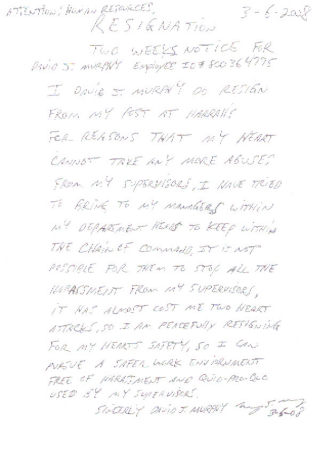 ATTENTION: HUMAN RESOURCES,
3-6-2008
RESIGNATION
TWO WEEKS NOTICE FOR
DAVID J. MURPHY EMPLOYEE ID# 800364775
I DAVID J. MURPHY DO RESIGN
FROM MY POST AT HARRAHS
FOR REASONS THAT MY HEART
CANNOT TAKE ANY MORE ABUSES
FROM MY SUPERVISORS, I HAVE TRIED
TO BRING TO MY MANAGERS WITHIN
MY DEPARTMENT HEADS TO KEEP WITHIN
THE CHAIN OF COMMAND, IT IS NOT
POSSIBLE FOR THEM TO STOP ALL THE
HARASSMENT FROM MY SUPERVISORS,
IT HAS ALMOST COST ME TWO HEART
ATTACKS, SO I AM PEACEFULLY RESIGNING
FOR MY HEARTS SAFETY, SO I CAN
A SAFER WORK
FREE OF AND QUID-PRO-QUO
USED BY MY SUPERVISORS.
DAVID J. MURPHY
3-6-08